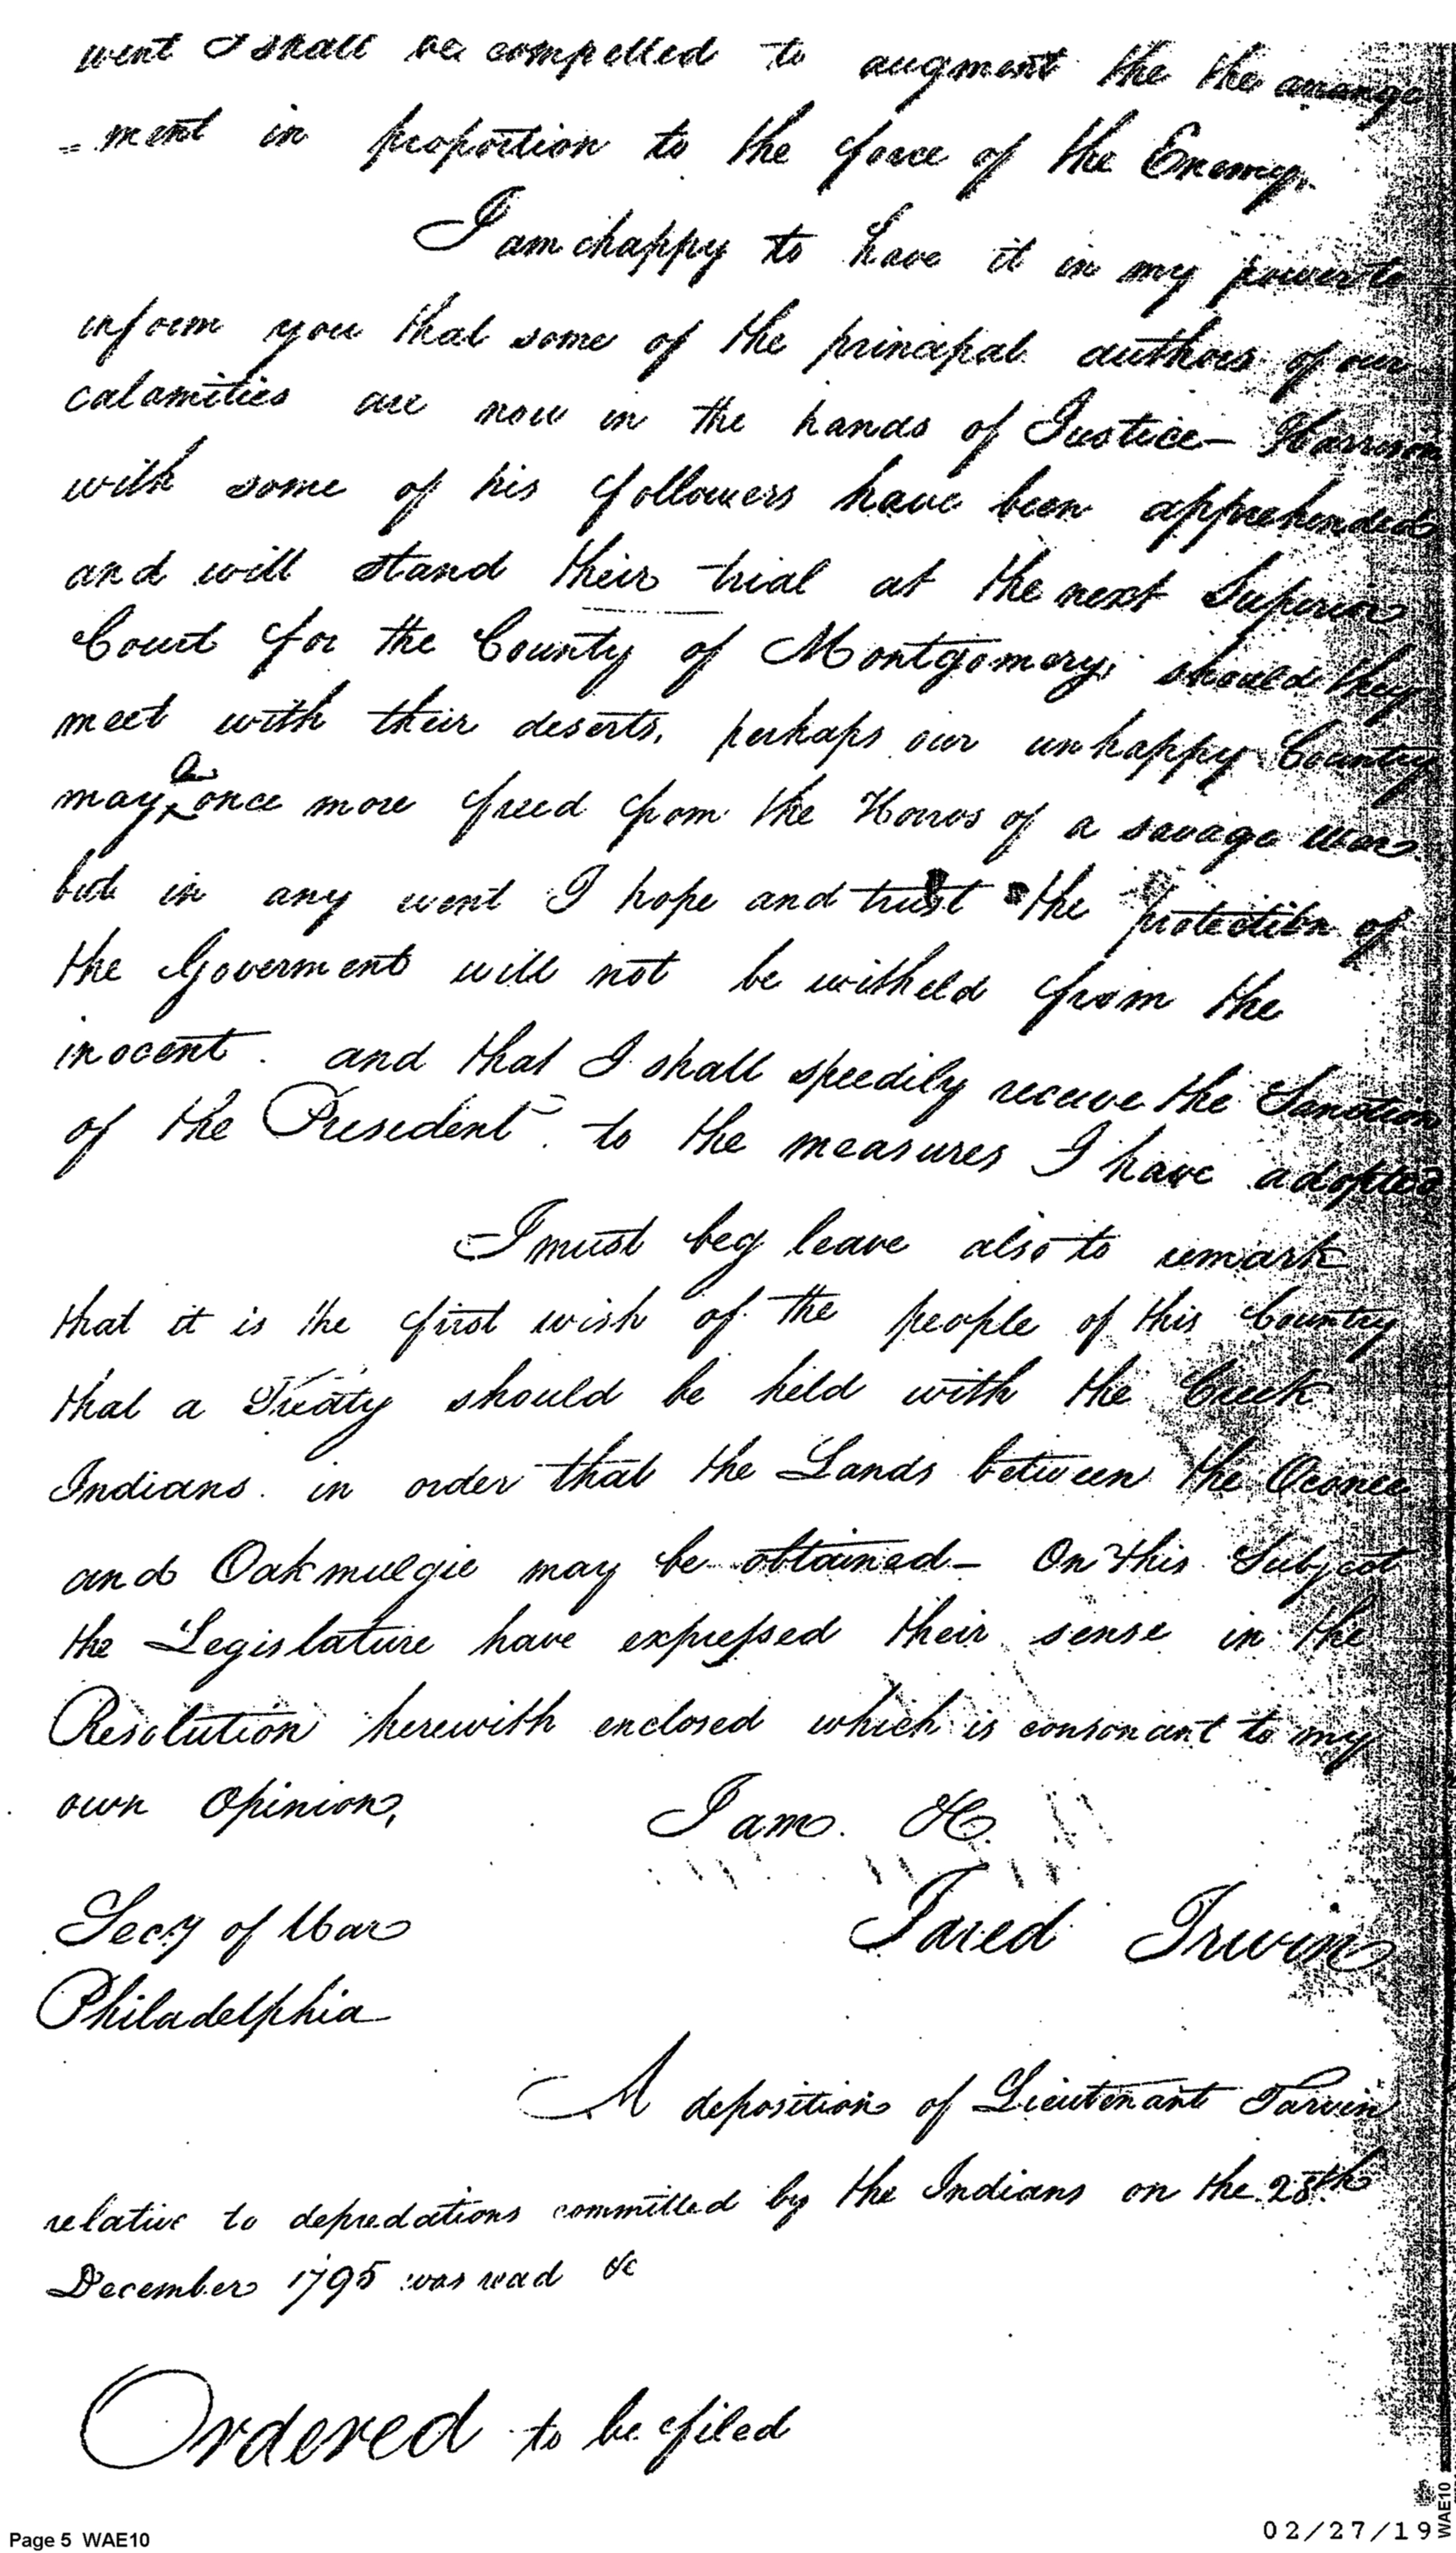 event I shall be compelled to augment the the arrange
= ment in proportion to the force of the Enemy.
I am happy to have it in my power to
inform you that some of the principal authors of our
calamities are now in the hands of Justice — Harrison
with some of his followers have been apprehended
and will stand their trial at the next Superior
Court for the County of Montgomery; should they
meet with their deserts, perhaps our unhappy Country
be
may ‸ once more freed from the Horros of a savage war
but in any event I hope and trust the protection of
the Goverment will not be witheld from the
inocent. and that I shall speedily receive the Sanction
of the President. to the measures I have adopted
I must beg leave also to remark
that it is the first wish of the people of this Country
that a Treaty should be held with the Creek
Indians. in order that the Lands between the Oconee
and Oakmulgie may be obtained — On this Subject
the Legislature have expressed their sense in the
Resolution herewith enclosed which is consonant to my
own Opinion,
I am. &c.
Jared Irwin
Secy of War
Philadelphia
A deposition of Lieutenant Tarvin
relative to depredations committed by the Indians on the 28th
December 1795 was read &c
Ordered to be filed
Page 5 WAE10
02/27/19
WAE10